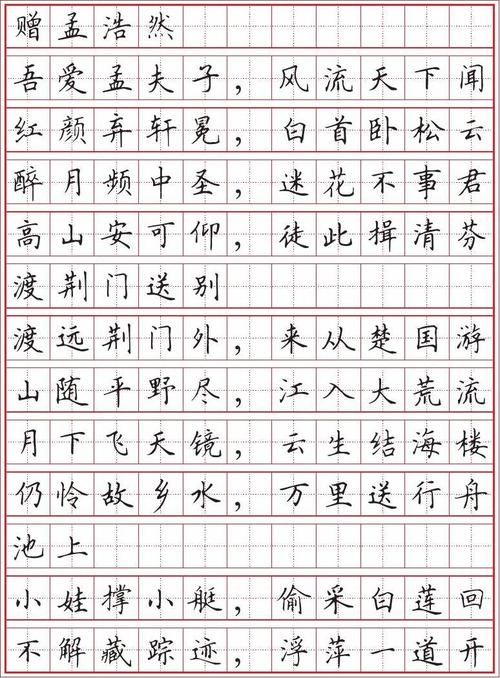 赠孟浩然
吾爱孟夫子，风流天下闻
红颜弃轩冕，白首卧松云
醉月频中圣，迷花不事君
高山安可仰，徒此揖清芬
渡荆门送别
渡远荆门外，来从楚国游
山随平野尽，江入大荒流
月下飞天镜，云生结海楼
仍怜故乡水，万里送行舟
池上
小娃撑小艇，偷采白莲回
不解藏踪迹，浮萍一道开